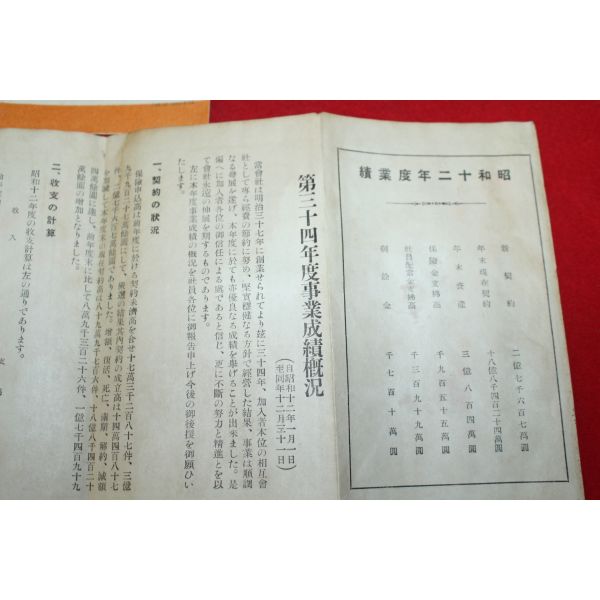 昭和十二年度業績
新契約 二億七千六百七萬圓
年末現在契約 十八億八千四百二十四萬圓
年末資產 三億八百四萬圓
保險金支拂高 千九百五十五萬圓
社員配當金支拂高 千三百九十九萬圓
剩餘金 千七百十萬圓
第三十四年度事業成績槪況
（自昭和十二年一月一日
至同年十二月三十一日）
當會社は明治三十七年に創業せられてより玆に三十四年、加入者本位の相互會
社として專ら經費の節約に努め、堅實穩健なる方針で經營した結果、事業は順調
なる發展を遂げ、本年度に於ても亦優良なる成績を擧げることが出來ました。是
偏へに加入者各位の御信任による處であると信じ、更に不斷の努力と精進とを以
て會社永遠の伸展を期するものであります。
左に本年度事業成績の槪況を社員各位に御報告申上げ今後の御後援を御願ひい
たします。
一、契約の狀況
保險申込高は前年度に於ける契約未濟高を合せ十七萬三千二百八十七件、三億
件、二億七千六百七萬餘圓でありました。增額、復活、死亡、滿期、解約、減額
四萬餘圓に達し、前年度末に比して八萬九千三百二十六件、一億七千四百九十九
萬餘圓の增加となりました。
二、收支の計算
昭和十二年度の收支計算は左の通りであります。
收入